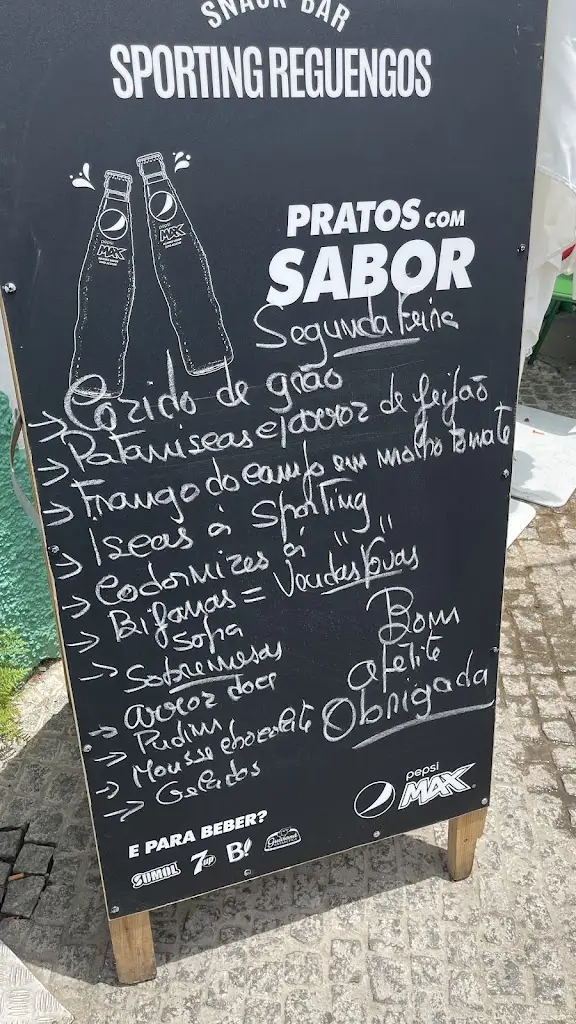 SNACK BAR
SPORTING REGUENGOS
pepsi MAX
pepsi MAX
PRATOS COM
SABOR
Segunda Feira
Cozido de grão
→ Pataniscas e/arroz de feijão
→ Frango do campo em molho tomate
→ Iscas á Sporting
→ Codornizes á " "
→ Bifanas = Vendas Novas
→ Sopa
Sobremesas
→ arroz doce
→ Pudim
→ Mousse chocolate
→ Gelados
Bom
apetite
Obrigada
pepsi
MAX
E PARA BEBER?
SUMOL 7up B! Guaraná